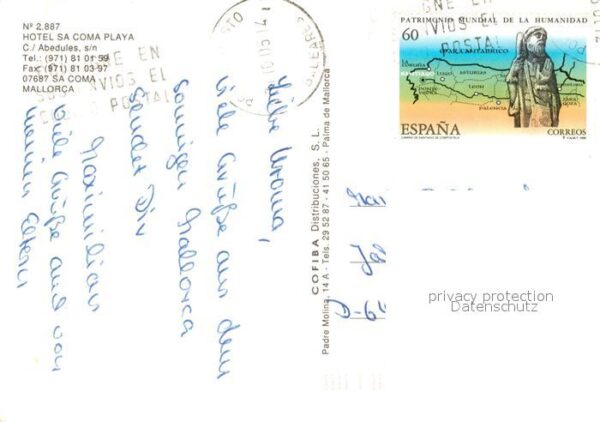 Nº 2.887
HOTEL SA COMA PLAYA
C./ Abedules, s/n
Tel.: (971) 81 01 59
Fax: (971) 81 03 97
07687 SA COMA
MALLORCA
EN
ENVIOS EL
POSTAL
BALEARES
Liebe Uroma,
viele Grüße aus dem
sonnigen Mallorca
sendet Dir
Maximilian
Viele Grüße auch von
meinen Eltern
COFIBA Distribuciones, S. L.
Padre Molina, 14 A - Tels. 29 52 87 - 41 50 65 - Palma de Mallorca
PATRIMONIO MUNDIAL DE LA HUMANIDAD
60
MAR CANTABRICO
la coruña
SANTIAGO
lugo
asturias
leon
palencia
ESPAÑA
CORREOS
D-6
privacy protection
Datenschutz